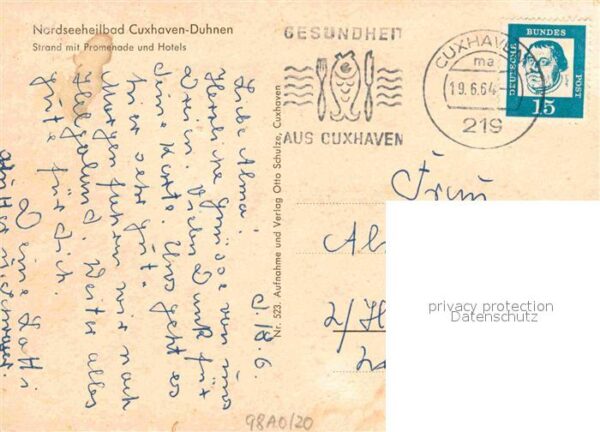 Nordseeheilbad Cuxhaven-Duhnen
Strand mit Promenade und Hotels
GESUNDHEIT
AUS CUXHAVEN
CUXHAVEN
ma
19.6.64
219
DEUTSCHE BUNDESPOST
15
Nr. 523. Aufnahme und Verlag Otto Schulze, Cuxhaven
d. 18. 6.
Liebe Alma!
Herzliche Grüsse von uns
Drein. Vielen Dank für
Deine Karte. Uns geht es
hier sehr gut.
Morgen fahren wir nach
Helgoland. Weiter alles
Gute für Dich.
Deine
Frau
Al
2/H
privacy protection
Datenschutz
98A0/20